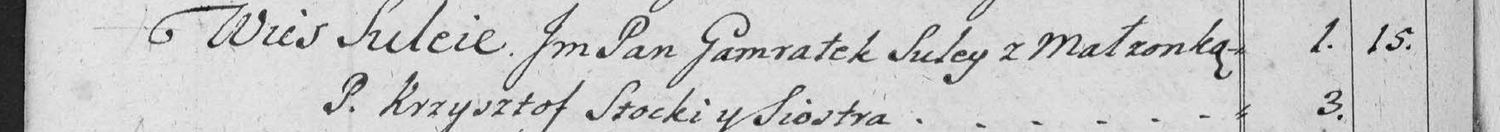 Wies Suleie. Jm Pan Gamratek Suley z Małzonką 1. 15.
P. Krzysztof Stocki y Siostra . . . . . . . 3.